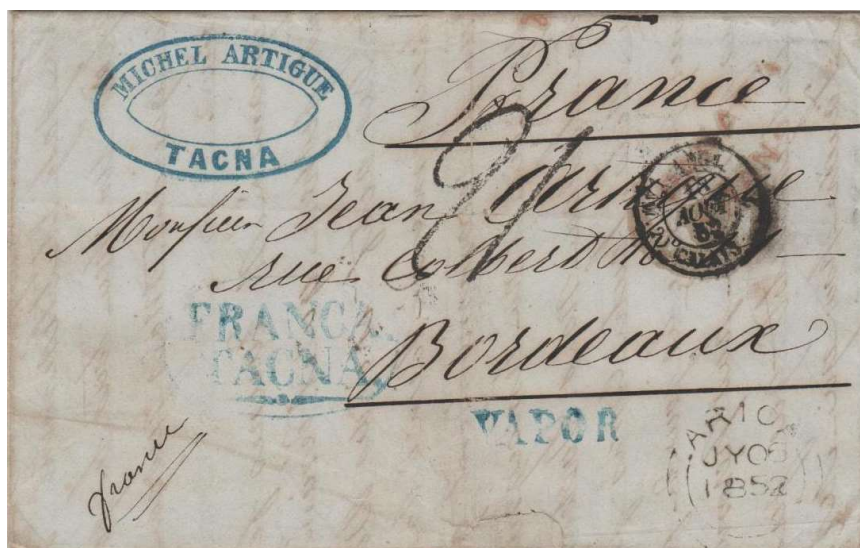 MICHEL ARTIGUE
TACNA
France
21
Monsieur Jean Artigue
rue Colbert
Bordeaux
ANGL.
AOUT
52
2 CALAIS
FRANCA
TACNA
VAPOR
ARICA
JY 0
1852
franca